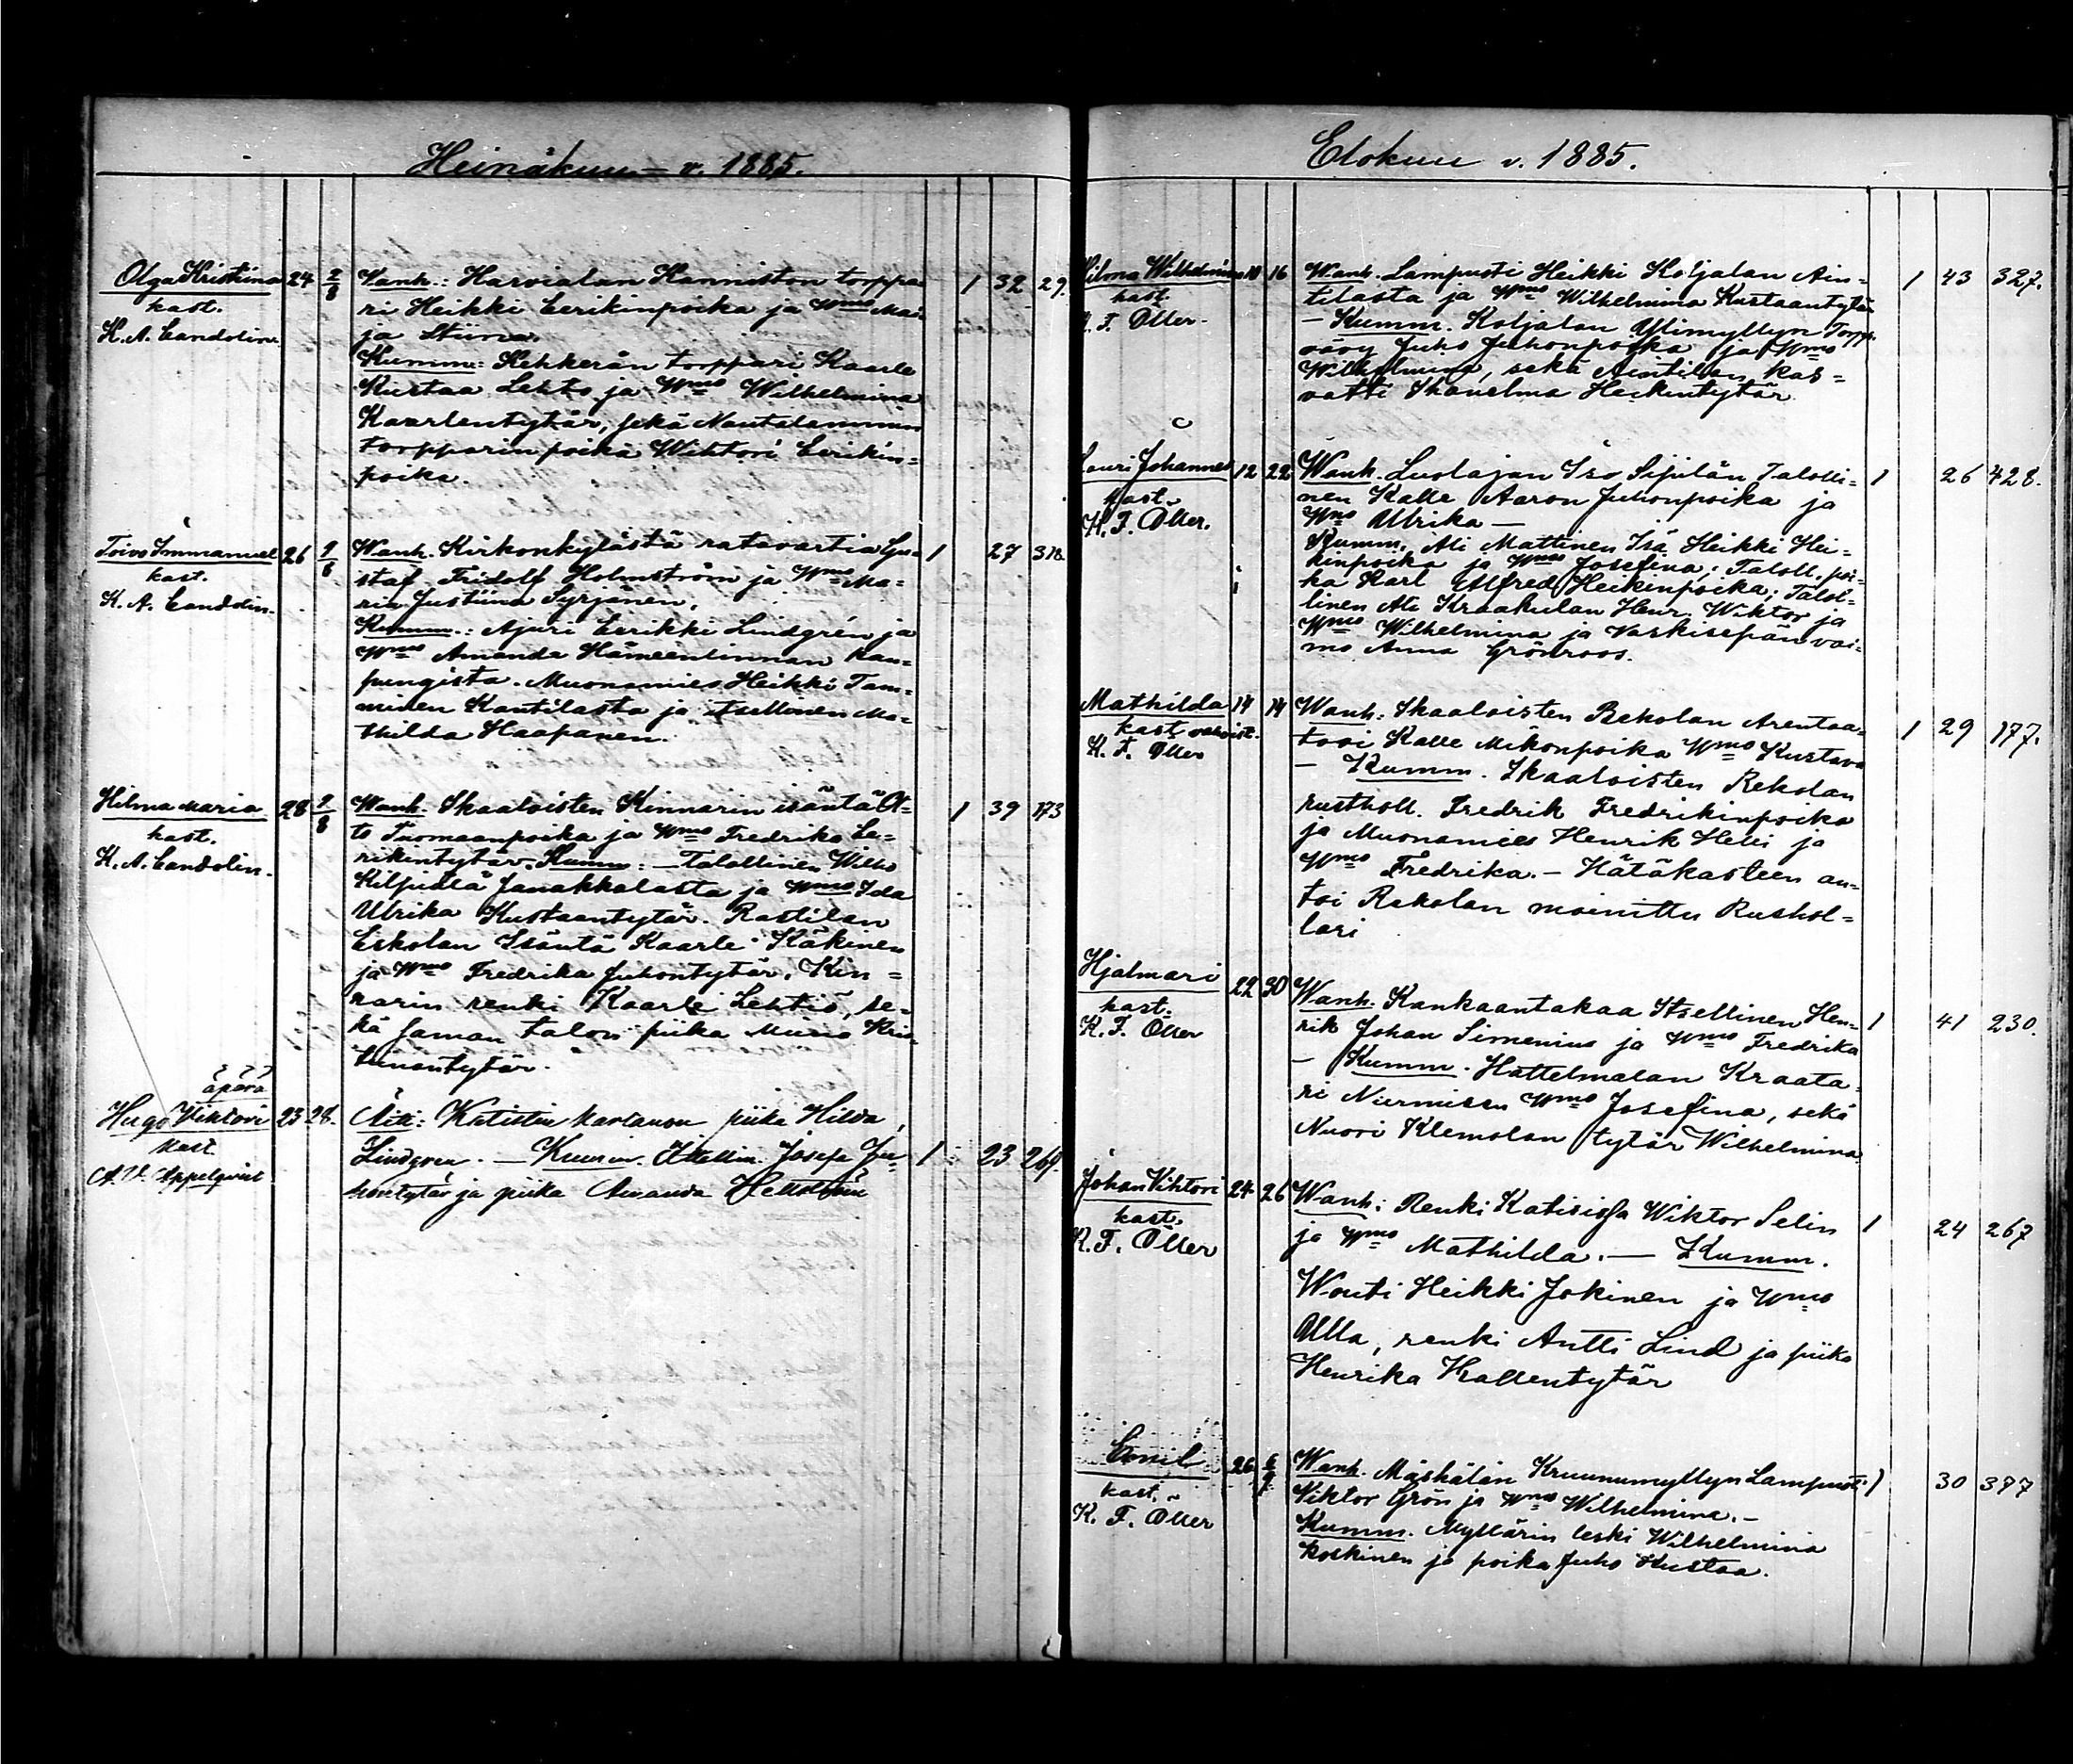 Heinäkuu v. 1885.
Olga Kristiina 24 2/8
kast.
K. A. Candolin.
Wanh.: Harvialan Kanniston torppa-
ri Heikki Eerikinpoika ja Wmo Mai-
ja Stiina.
Kumm: Kehkerän torppari Kaarle
Kustaa Lehto ja Wmo Wilhelmina
Kaarlentytär, sekä Nautalammin
torpparinpoika Wihtori Eerikin-
poika.
1 32 29.
Toivo Immanuel 26 9/8
kast.
K. A. Candolin.
Wanh. Kirkonkylästä ratavartia Gus-
taf Fridolf Holmström ja Wmo Ma-
ria Justiina Syrjänen.
Kumm.: Ajuri Eerikki Lindgrén ja
Wmo Amanda Hämeenlinnan kau-
pungista. Muonamies Heikki Tam-
minen Kantilasta ja Itsellinen Ma-
thilda Haapanen.
1 27 318.
Hilma Maria 28 9/8
kast.
K. A. Candolin.
Wanh. Skaaloisten Kinnarin isäntä Ot-
to Tuomaanpoika ja Wmo Fredrika Ee-
rikintytär. Kumm: Talollinen Wilho
Kilpiälä Janakkalasta ja Wmo Ida
Ulrika Kustaantytär. Rastilan
Eskolan Isäntä Kaarle Käkinen
ja Wmo Fredrika Juhontytär. Kin-
narin renki Kaarle Lehtiö, se-
kä saman talon piika Miina Kris-
tiinantytär.
1 39 173
äpärä
Hugo Viktori 23 28.
kast
A. V. Appelqvist
Äiti: Katistin kartanon piika Hilda
Lindgren. — Kumm. Itsellin. Josefa Ju-
hontytär ja piika Amanda Hellström
1 23 264.
Elokuu v. 1885.
Hilma Wilhelmina 10 16
kast.
K. F. Oller.
Wanh. Lampuoti Heikki Koljalan Ain-
tilasta ja Wmo Wilhelmina Kustaantytär
— Kumm. Koljalan Ylimyllyn Torpp.
vävy Juho Juhonpoika ja Wmo
Wilhelmina, sekä Aintilan kas-
vatti Skanelma Heikintytär
1 43 327.
Lauri Johannes 12 22
kast
K. F. Oller.
Wanh. Luolajan Iso Sipilän Talolli-
nen Kalle Aaron Juhonpoika ja
Wmo Ulrika —
Kumm. Ali Mattinen Isä Heikki Hei-
kinpoika ja Wmo Josefina; Taloll. poi-
ka Karl Alfred Heikinpoika; Talol-
linen Ali Kraakulan Henr. Wiktor ja
Wmo Wilhelmina ja Vaskisepän vai-
mo Anna Grönroos.
1 26 428.
Mathilda 14 14
kast vahvist.
K. F. Oller
Wanh: Skaaloisten Rekolan Arentaa-
tori Kalle Mikonpoika Wmo Kustava
— Kumm. Skaaloisten Rekolan
rustholl. Fredrik Fredrikinpoika
ja Muonamies Henrik Heli ja
Wmo Fredrika. — Hätäkasteen an-
toi Rekolan mainittu Rushol-
lari
1 29 177.
Hjalmari 22 30
kast.
K. F. Oller
Wanh. Kankaantakaa Itsellinen Hen-
rik Johan Simenius ja Wmo Fredrika
— Kumm. Hattelmalan Kraata-
ri Niermisen Wmo Josefina, sekä
Nuori Klemolan tytär Wilhelmina.
1 41 230.
Johan Vihtori 24 26
kast.
K. F. Oller
Wanh: Renki Katisissa Wiktor Selin
ja Wmo Mathilda. — Kumm.
Wouti Heikki Jokinen ja Wmo
Ulla, renki Antti Lind ja piika
Henrika Kallentytär
1 24 267
Emil 26 6/9
kast.
K. F. Oller
Wanh. Mäskälän Kruunumyllyn Lampuoti
Viktor Grön ja Wmo Wilhelmina. —
Kumm. Myllärin leski Wilhelmina
Koskinen ja poika Juho Kustaa.
1 30 377